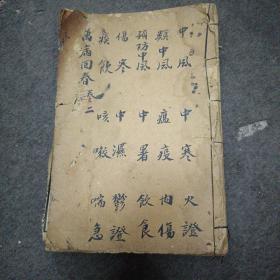 中風 中寒 火證
類中風 瘟疫 內傷
預防中風 中暑 飲食
傷寒 中濕 鬱證
痰飲 咳嗽 喘急
萬病回春 卷二